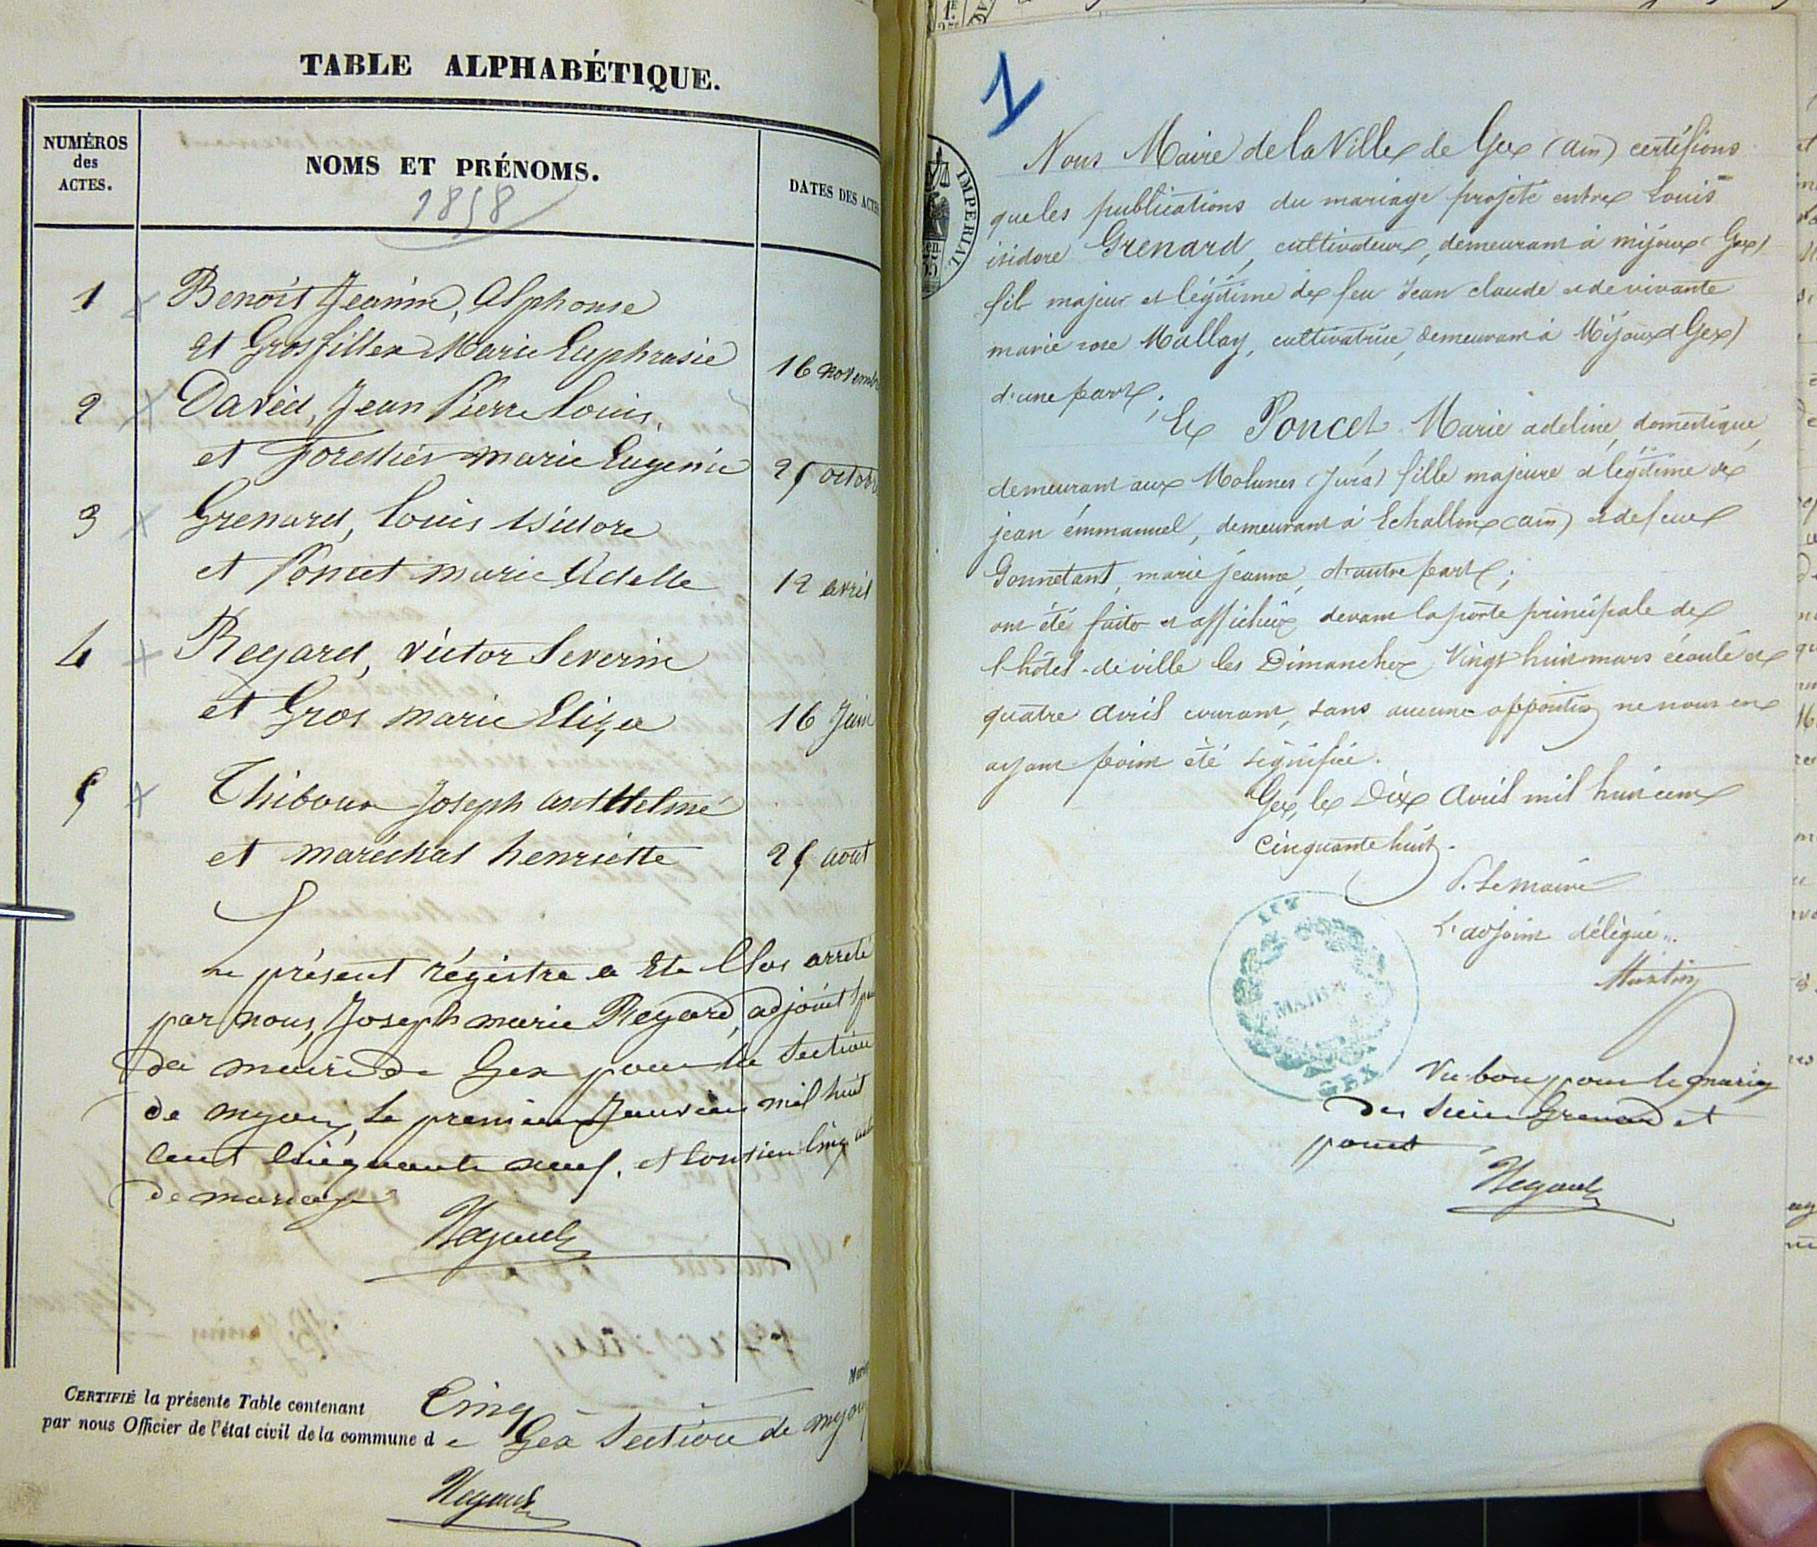 TABLE ALPHABÉTIQUE.
NUMÉROS
des
ACTES.
NOMS ET PRÉNOMS.
1858
DATES DES ACTES
1 Benoit Jeanin, Alphonse
et Grosfillex Marie Euphrasie 16 novembre
2 David, Jean Pierre Louis,
et Forestier marie Eugenie 25 octobre
3 Grenard, Louis Isidore
et Poncet marie Adelle 12 avril
4 Regard, victor Severin
et Gros marie Eliza 16 Juin
5 Thiboux Joseph anthelme
et maréchal henriette 25 aout
Le présent régistre a Ete Clos arreté
par nous, Joseph marie Regard, adjoint
de Gex pour la Section
de myoux, le premier Janvier mil huit
Cent Cinquante neuf, et Contien Cinq
de mariage
Regard
CERTIFIÉ la présente Table contenant Cinq
par nous Officier de l'état civil de la commune d e Gex Section de myoux
Regard
1
IMPERIAL
Nous Maire de la Ville de Gex (ain) certifions
que les publications du mariage projeté entre Louis
isidore Grenard, cultivateur, demeurant à mijoux (Gex)
fils majeur et légitime de feu Jean claude et de vivante
marie rose Mallay, cultivatrice, demeurant à Mijoux (Gex)
d'une part;
Et Poncet Marie adeline, domestique,
demeurant aux Molunes (Jura) fille majeure et légitime de
jean émmanuel, demeurant à Echallon (ain) et de feue
Gonnetant, marie jeanne, d'autre part;
ont été faites et affichées devant la porte principale de
l'hôtel-de ville les Dimanches Vingt huit mars écoulé et
quatre Avril courant, sans aucune opposition ne nous en
ayant point été signifiée.
Gex, le Dix Avril mil huit cent
cinquante huit.
P. Le maire
L'adjoint délégué.
Martin
MAIRIE
GEX
Vu bon pour le mariage
des sieur Grenard et
poncet
Regard